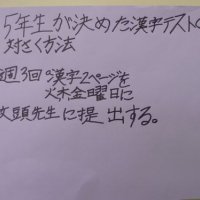 5年生が決めた漢字テストの
対さく方法
週3回漢字2ページを
火木金曜日に
教頭先生に提出する。